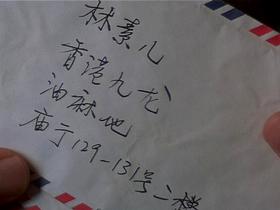 林素儿
香港九龙
油麻地
庙于129-131号二楼